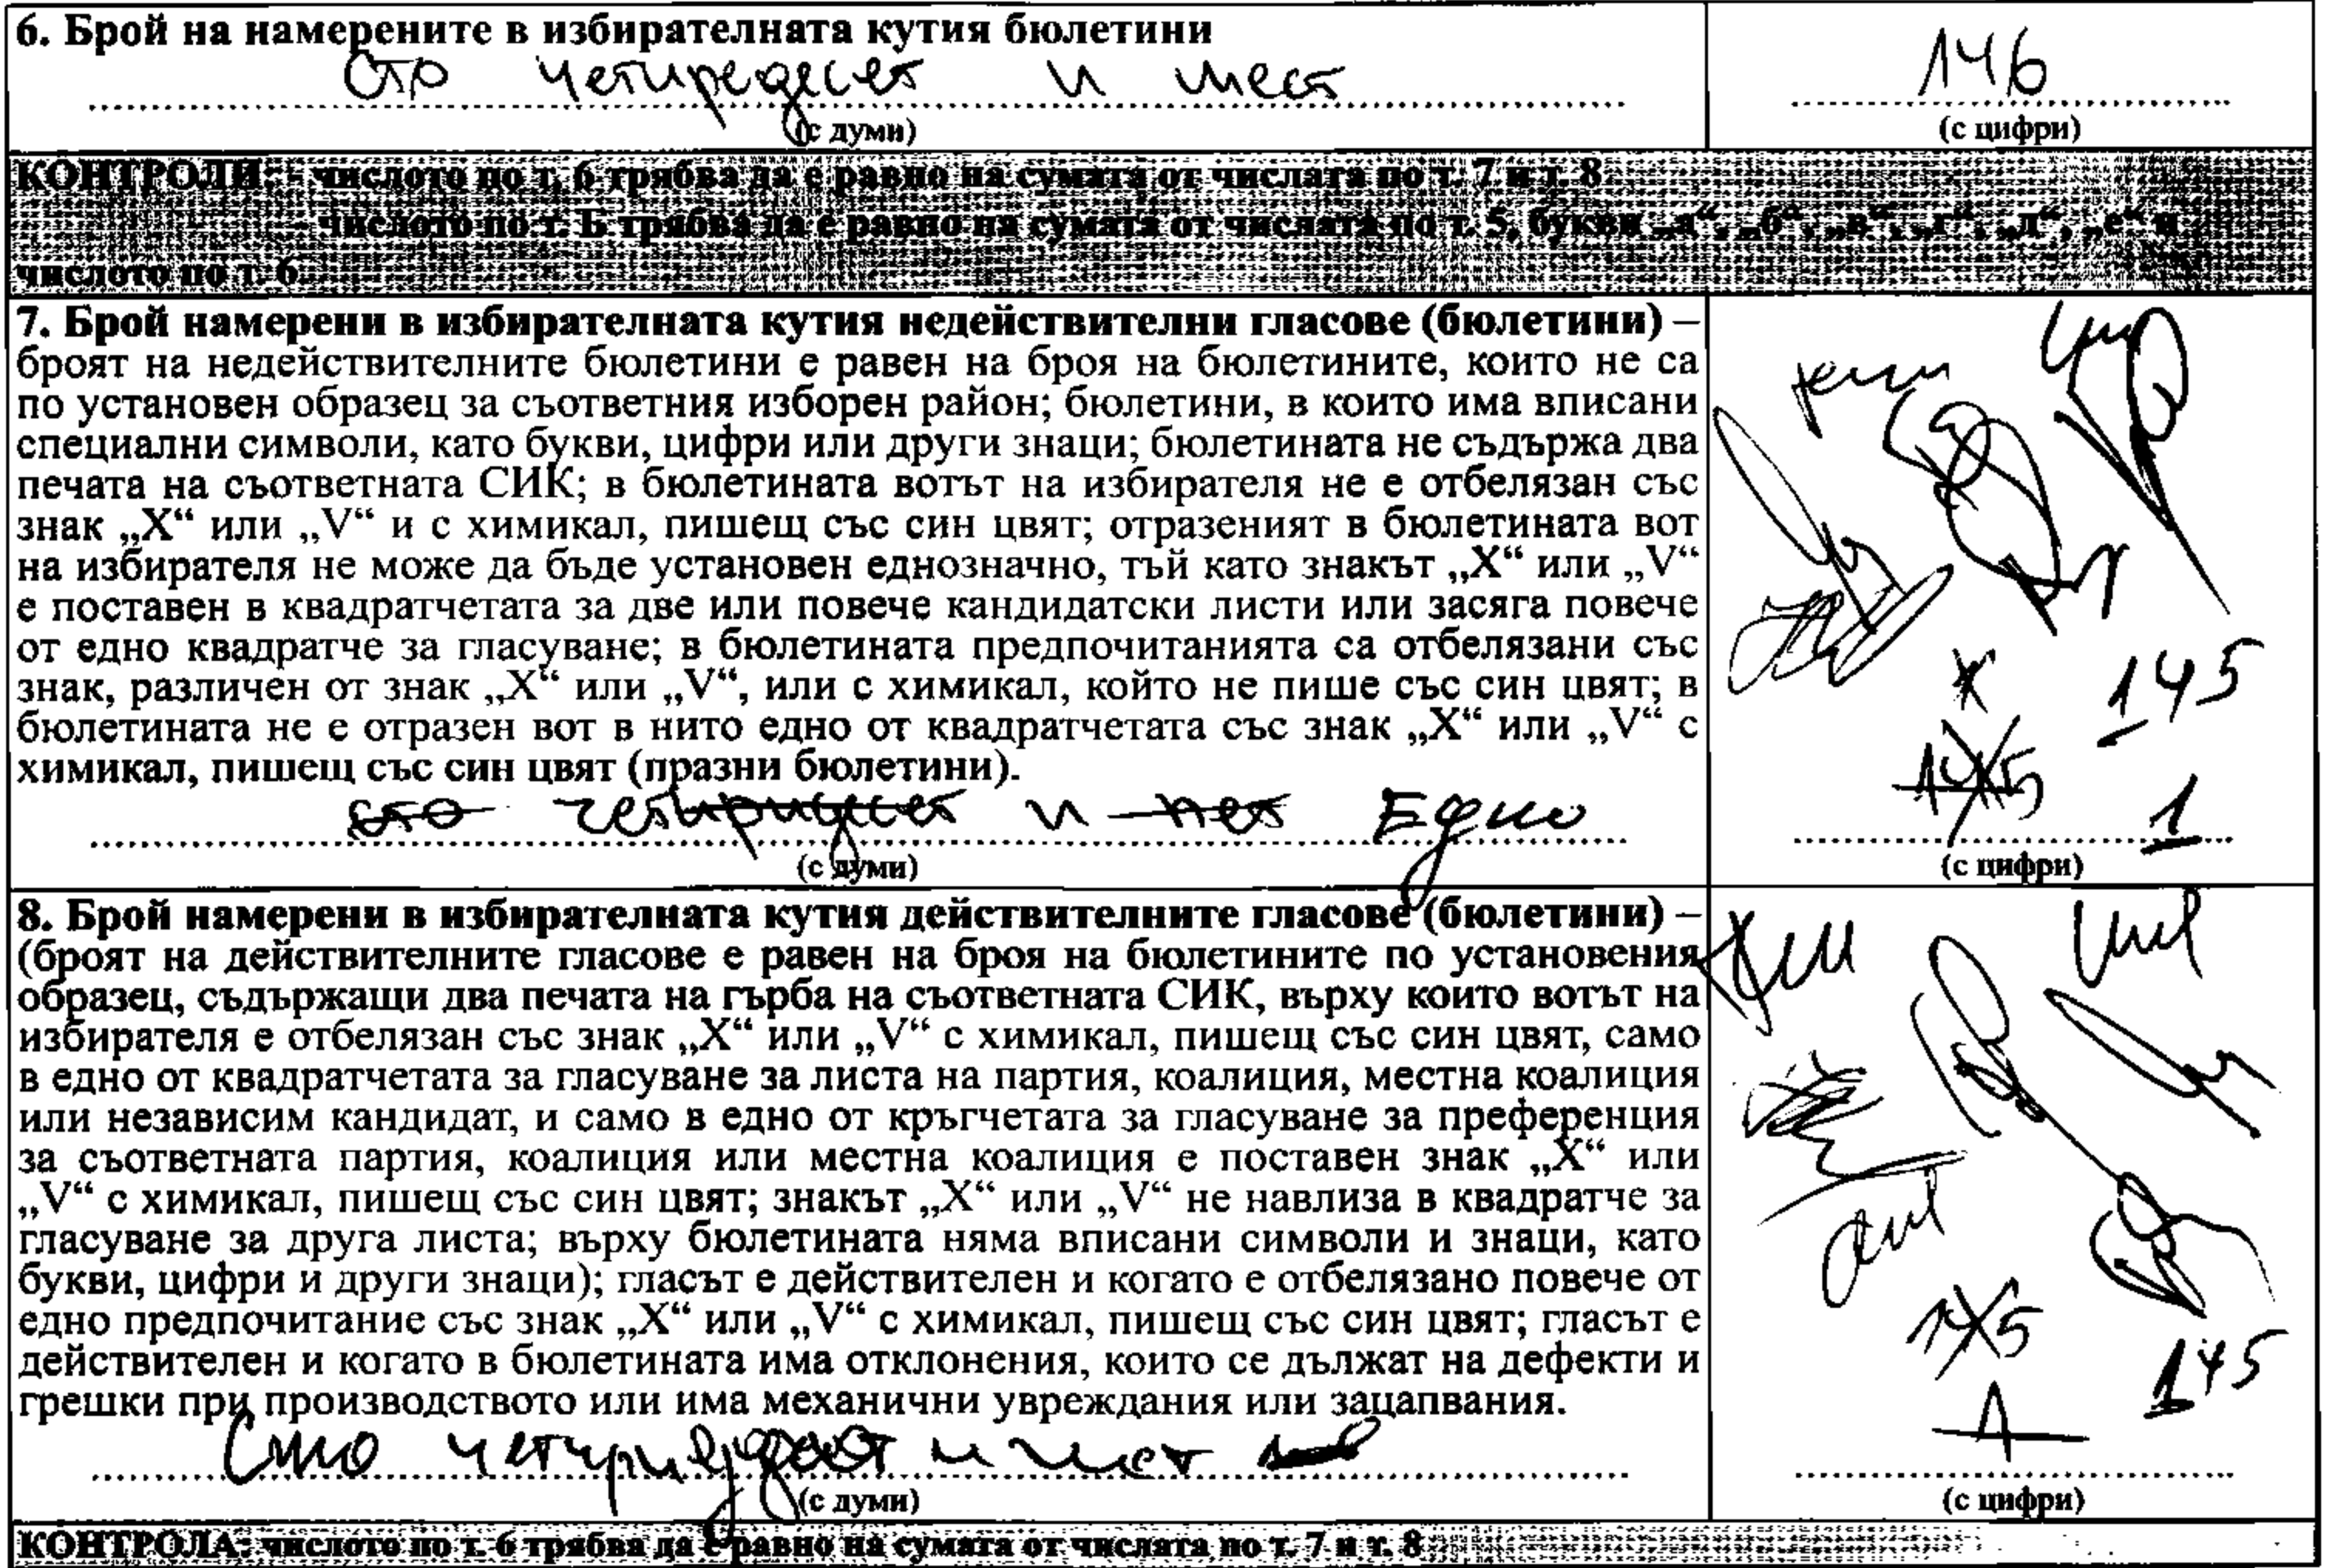 6. Брой на намерените в избирателната кутия бюлетини
сто четиредесет и шест
146
(с думи)
(с цифри)
КОНТРОЛИ: - числото по т. 6 трябва да е равно на сумата от числата по т. 7 и т. 8
- числото по т. Б трябва да е равно на сумата от числата по т. 5, букви „а“, „б“, „в“, „г“, „д“, „е“ и
числото по т. 6
7. Брой намерени в избирателната кутия недействителни гласове (бюлетини) –
броят на недействителните бюлетини е равен на броя на бюлетините, които не са
по установен образец за съответния изборен район; бюлетини, в които има вписани
специални символи, като букви, цифри или други знаци; бюлетината не съдържа два
печата на съответната СИК; в бюлетината вотът на избирателя не е отбелязан със
знак „X“ или „V“ и с химикал, пишещ със син цвят; отразеният в бюлетината вот
на избирателя не може да бъде установен еднозначно, тъй като знакът „X“ или „V“
е поставен в квадратчетата за две или повече кандидатски листи или засяга повече
от едно квадратче за гласуване; в бюлетината предпочитанията са отбелязани със
знак, различен от знак „X“ или „V“, или с химикал, който не пише със син цвят; в
бюлетината не е отразен вот в нито едно от квадратчетата със знак „X“ или „V“ с
химикал, пишещ със син цвят (празни бюлетини).
145
145
сто четиридесет и пет Едно
1
(с думи)
(с цифри)
8. Брой намерени в избирателната кутия действителните гласове (бюлетини) –
(броят на действителните гласове е равен на броя на бюлетините по установения
образец, съдържащи два печата на гърба на съответната СИК, върху които вотът на
избирателя е отбелязан със знак „X“ или „V“ с химикал, пишещ със син цвят, само
в едно от квадратчетата за гласуване за листа на партия, коалиция, местна коалиция
или независим кандидат, и само в едно от кръгчетата за гласуване за преференция
за съответната партия, коалиция или местна коалиция е поставен знак „X“ или
„V“ с химикал, пишещ със син цвят; знакът „X“ или „V“ не навлиза в квадратче за
гласуване за друга листа; върху бюлетината няма вписани символи и знаци, като
букви, цифри и други знаци); гласът е действителен и когато е отбелязано повече от
едно предпочитание със знак „X“ или „V“ с химикал, пишещ със син цвят; гласът е
действителен и когато в бюлетината има отклонения, които се дължат на дефекти и
грешки при производството или има механични увреждания или зацапвания.
145
145
1
Сто четиридесет и
(с думи)
(с цифри)
КОНТРОЛА: числото по т. 6 трябва да е равно на сумата от числата по т. 7 и т. 8